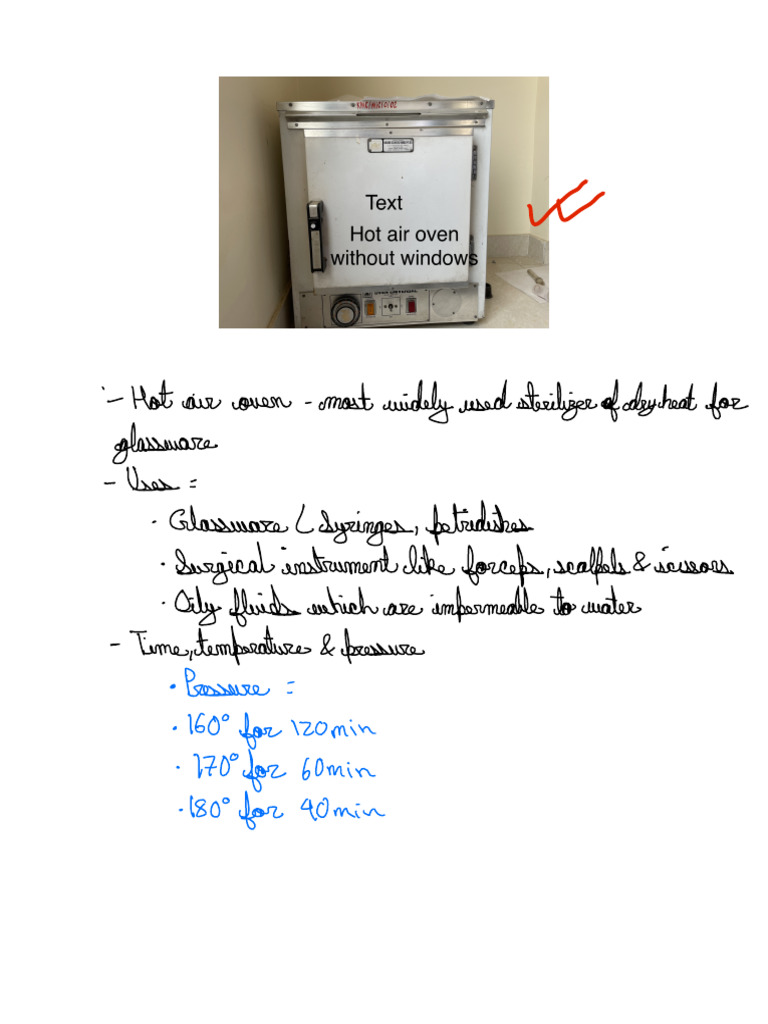 Text
Hot air oven
without windows
:- Hot air oven - most widely used sterilizer of dry heat for
glassware
- Uses =
· Glassware ( Syringes, petridishes
· Surgical instrument like forceps, scalpels & scissors
· Oily fluids which are impermeable to water
- Time, temperature & pressure
· Pressure =
· 160° for 120min
· 170° for 60min
· 180° for 40min